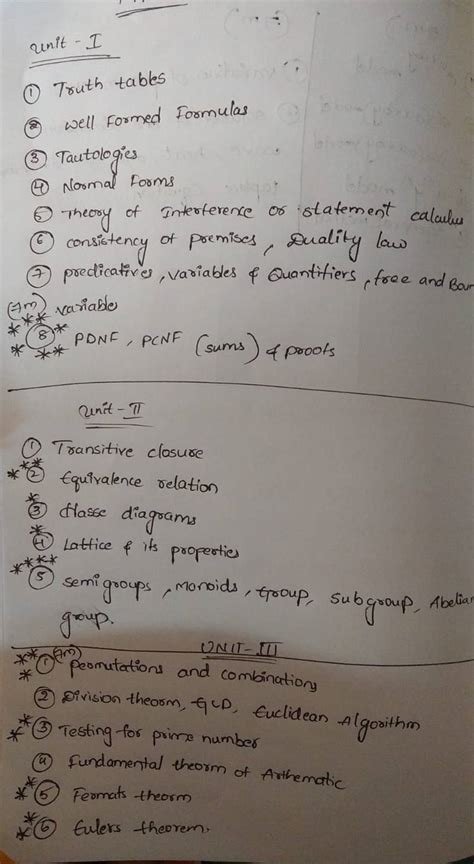 Unit - I
① Truth tables
② well Formed Formulas
③ Tautologies
④ Normal Forms
⑤ Theory of Interference or statement calculus
⑥ consistency of premises, Duality law
⑦ predicatives, variables & Quantifiers, free and Boun
(7m) variable
*** ⑧ * PDNF, PCNF (sums) & proofs
* **
Unit - II
① Transitive closure
*** ② Equivalence relation
* ③ Hasse diagrams
* ④ Lattice & its properties
***** ⑤ semigroups, Monoids, Group, subgroup, Abelian
group.
UNIT-III
*** ① (7m) permutations and combinations
② Division theorm, GCD, Euclidean Algorithm
** ③ Testing for prime number
④ Fundamental theorm of Arthematic
** ⑤ Fermats theorm
** ⑥ Eulers theorem.